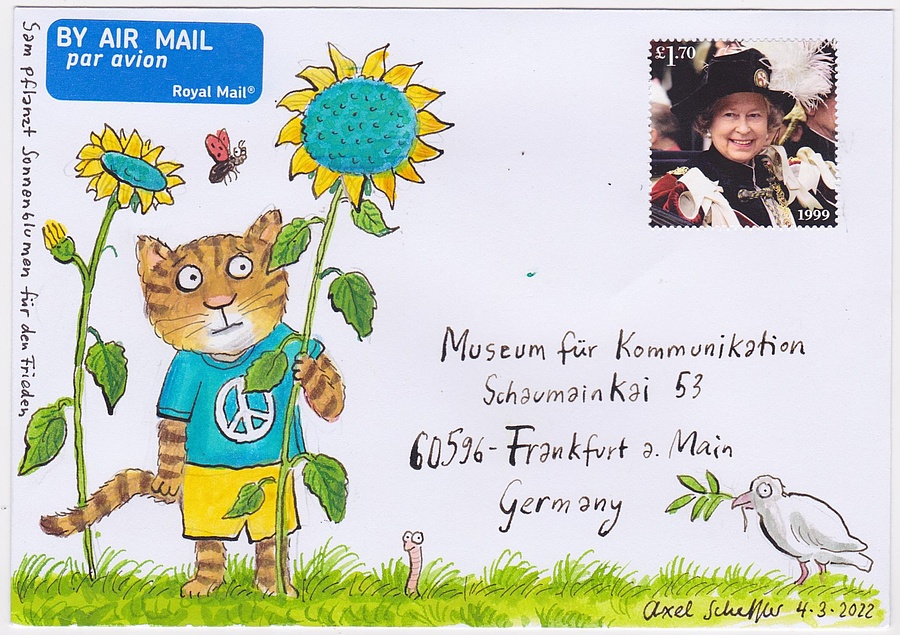 Sam pflanzt Sonnenblumen für den Frieden
BY AIR MAIL
par avion
Royal Mail®
£1.70
1999
Museum für Kommunikation
Schaumainkai 53
60596-Frankfurt a. Main
Germany
Axel Scheffler 4.3.2022